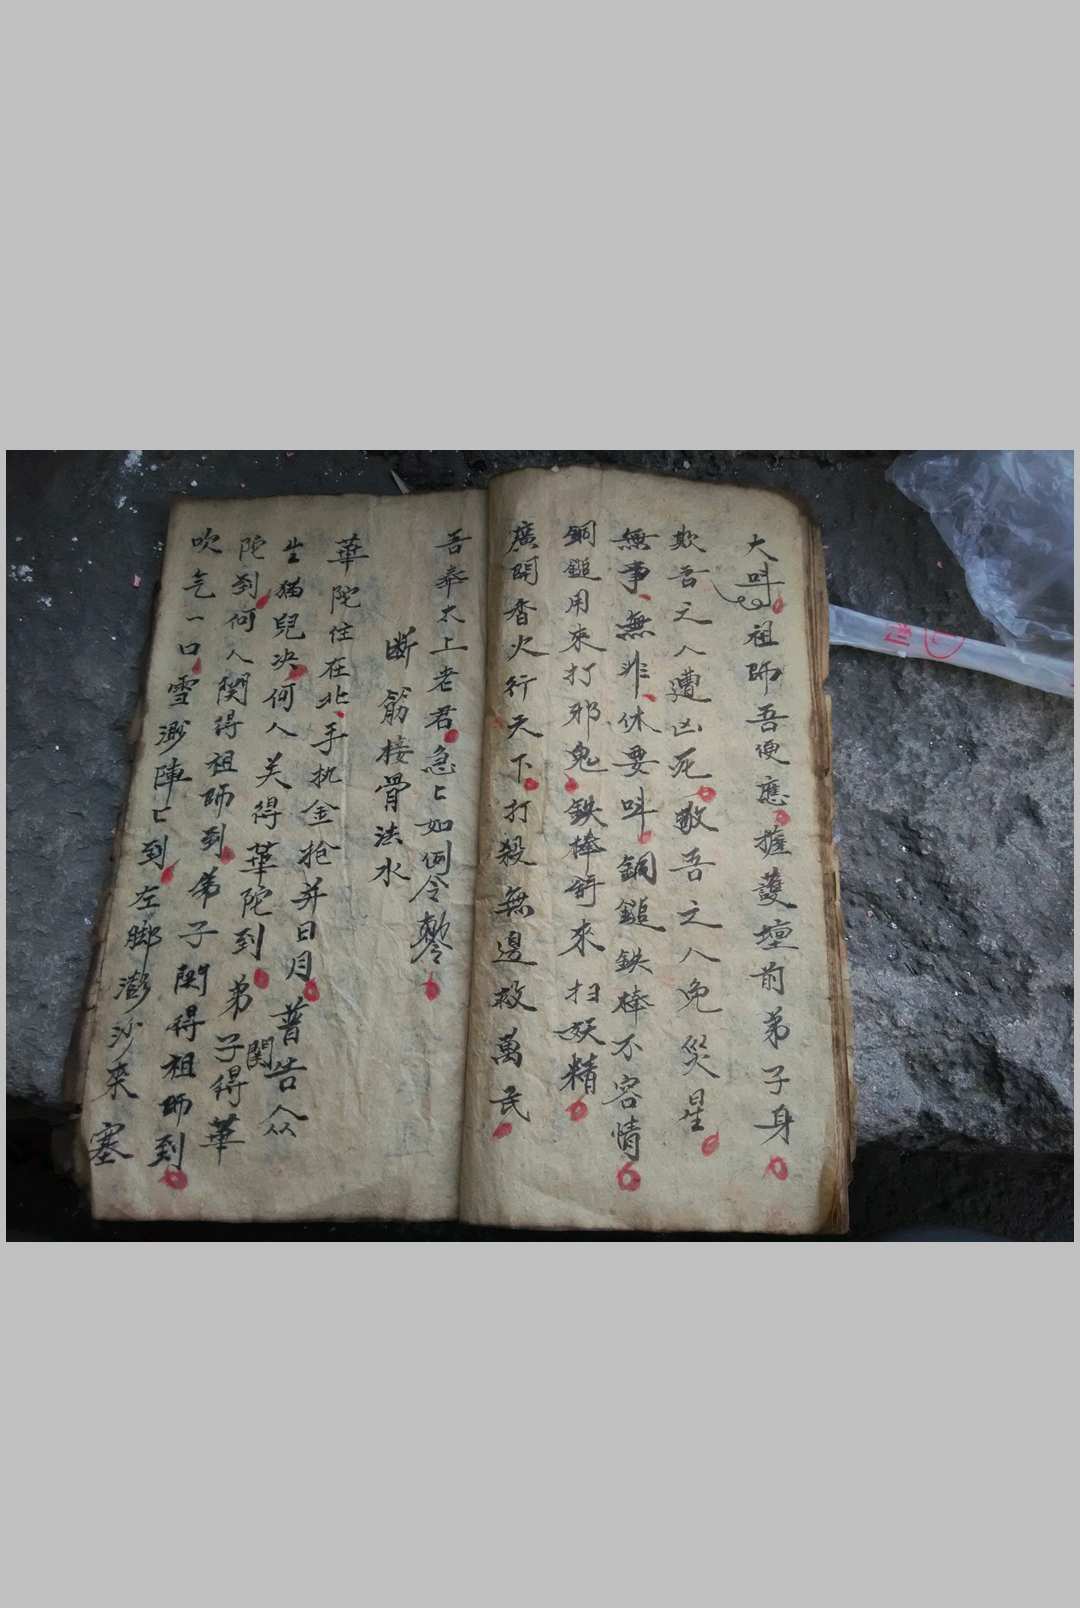 大叫祖師吾便應擁護壇前弟子身
欺吾之人遭凶死敬吾之人免災星
無事無非休要叫銅鎚鉄棒不容情
銅鎚用來打邪鬼鉄棒將來扫妖精
廣開香火行天下打殺無邊救萬民
吾奉太上老君急〻如例令敕
断筋接骨法水
華陀住在北手执金抢并日月普告众
生猫兒决何人关得華陀到弟子関得華
陀到何人関得祖師到弟子関得祖師到
吹气一口雪 陣〻到左脚 沙来塞